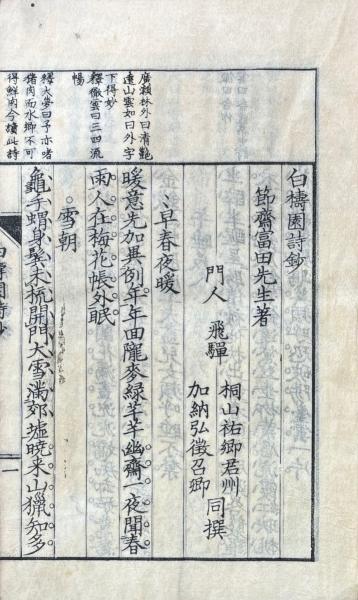 廣瀬林外曰清艶
遠山雲如曰外字
下得妙
釋徹雲曰三四流
暢
釋大夢曰予亦嗜
猪肉而水鄉不可
得鮮肉今讀此詩
白檮園詩鈔
節齋冨田先生著
門人 飛驒 桐山祐卿君州
加納弘徵召卿 同撰
早春夜暖
暖意先加異例年年面隴麥綠芊芊幽齋一夜聞春
雨人在梅花帳外眠
雪朝
龜手蝟身髮未梳開門大雪滿郊墟曉来山獵知多
一